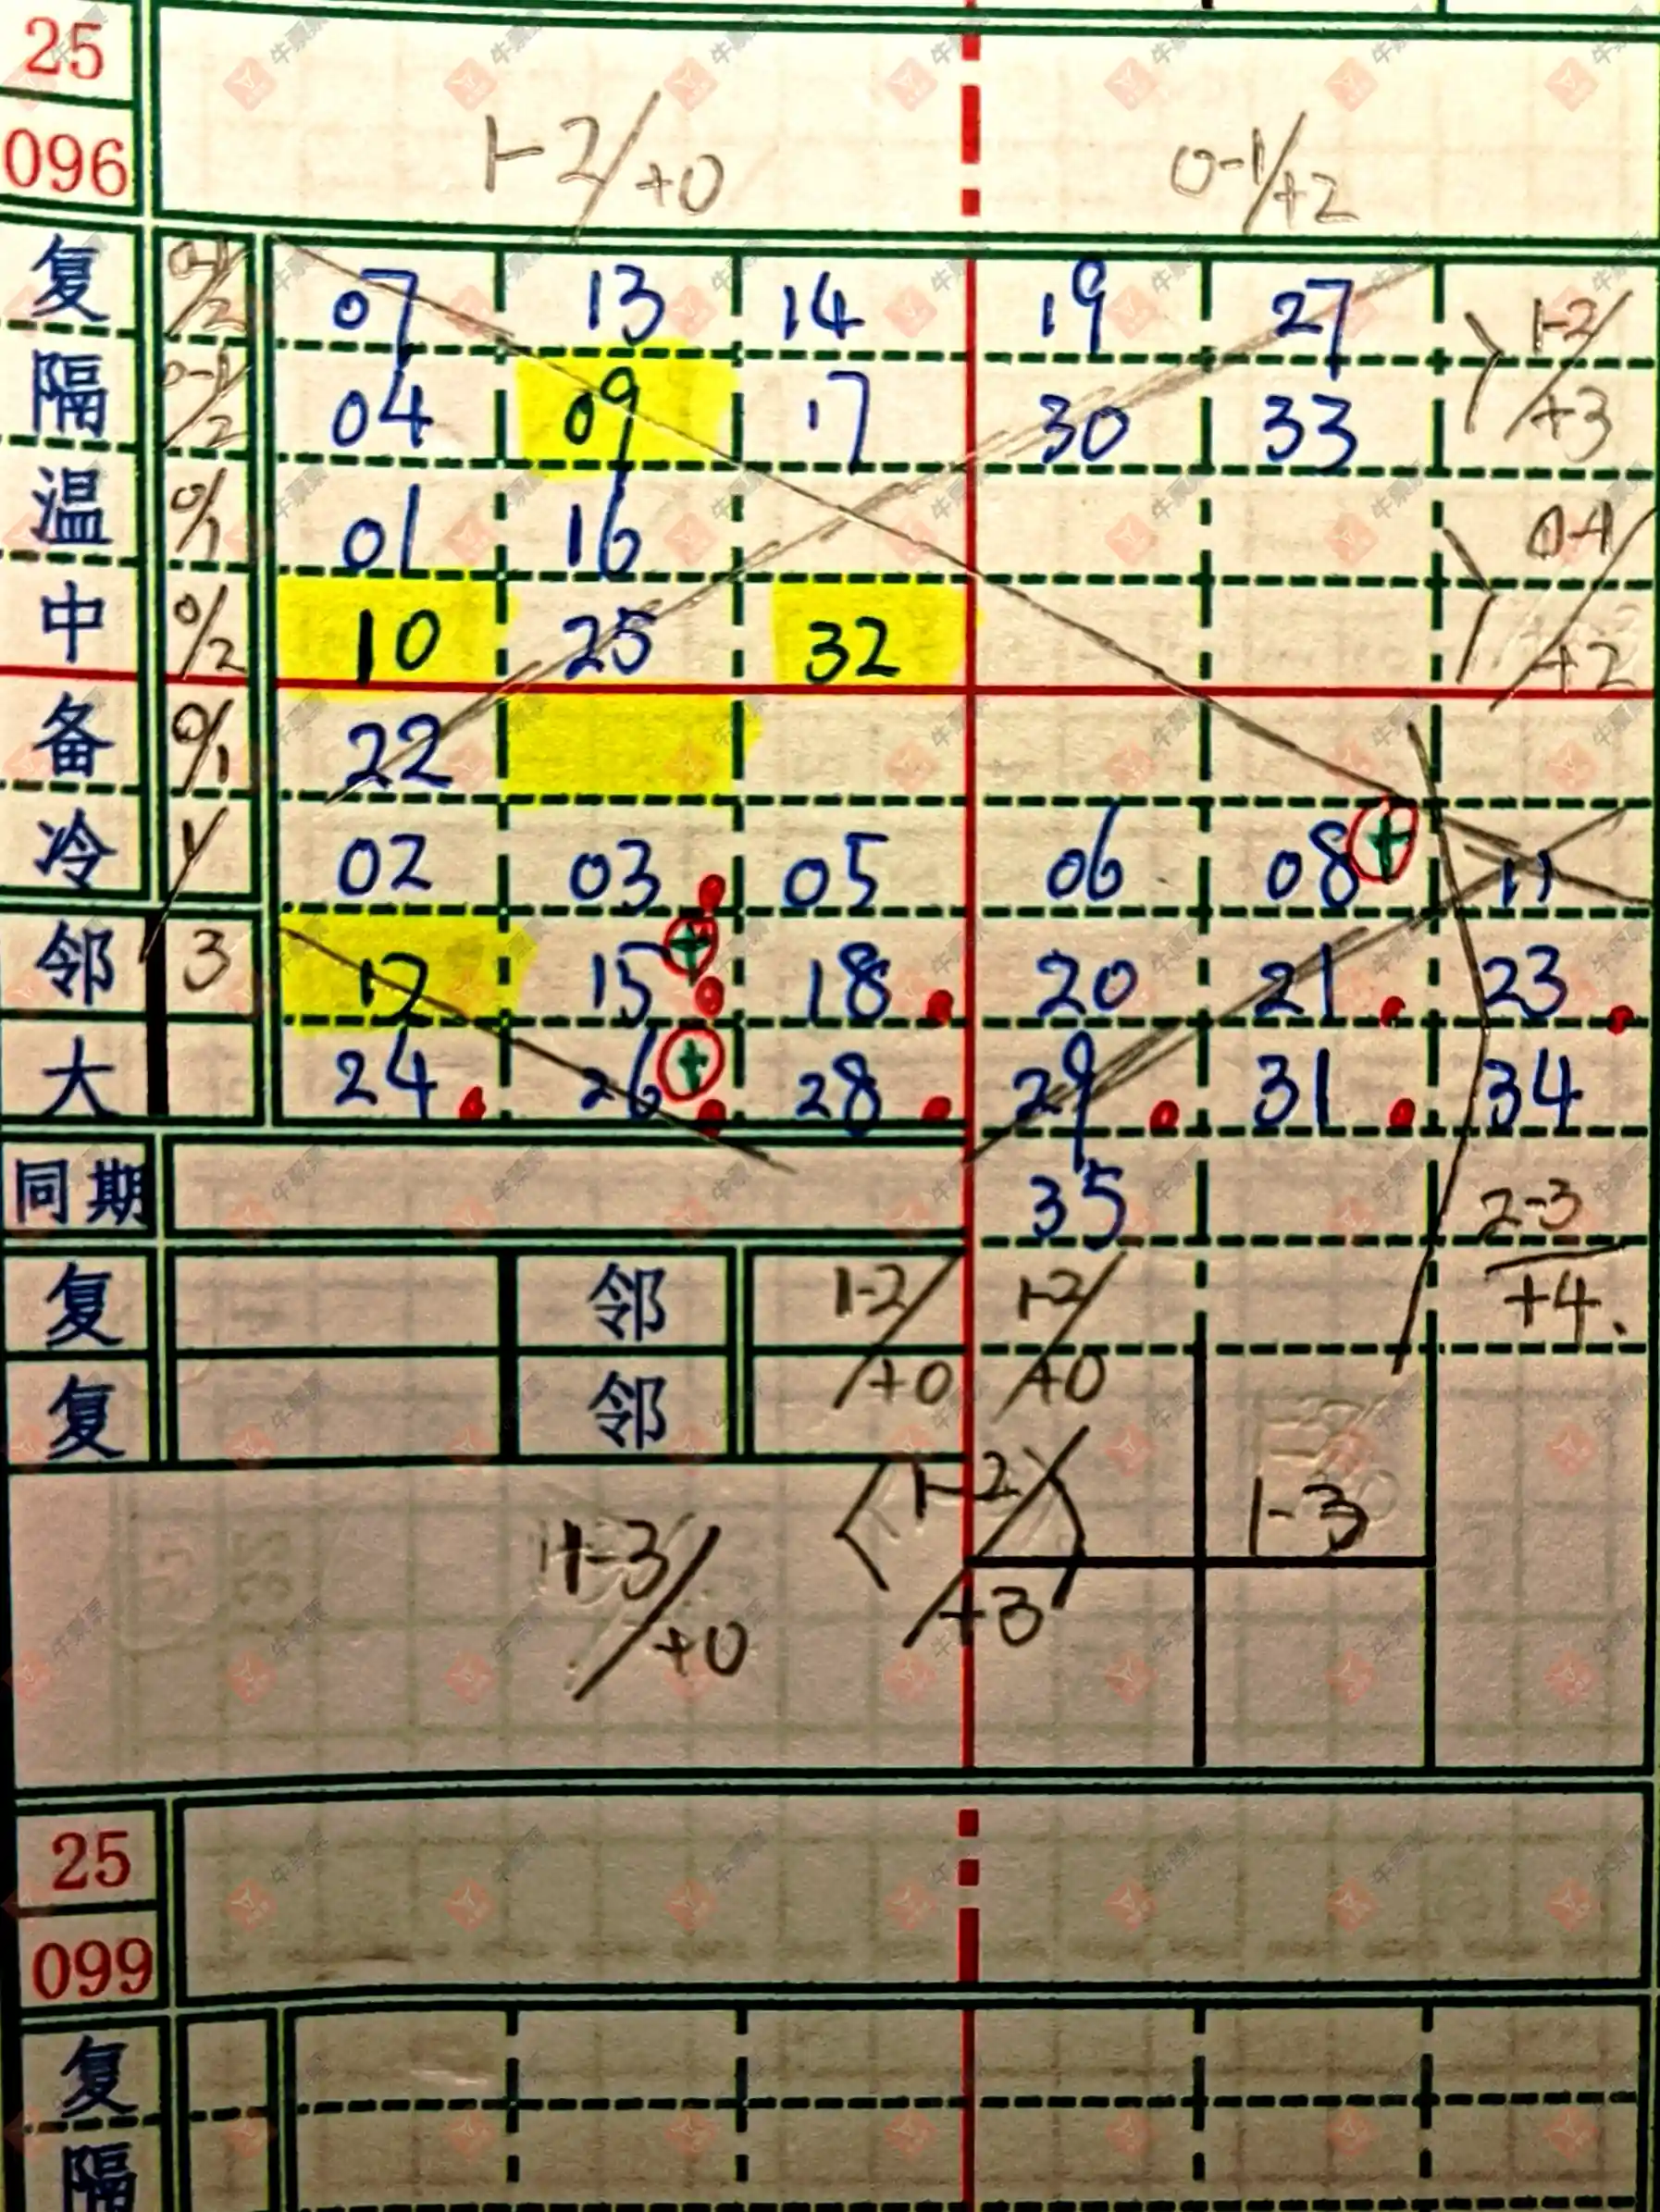 25
096
1-2/+0 0-1/+2
复 0-1/2 07 13 14 19 27
隔 0-1/2 04 09 17 30 33
1-2/+3
温 0/1 01 16
中 0/2 10 25 32
0-1/+2
备 0/1 22
冷 1/ 02 03 05 06 08 + 11
邻 3 12 15 + 18 20 21 23
大 24 26 + 28 29 31 34
同期 35 2-3/+4.
复 邻 1-2/+0 1-2/+0
复 邻
1-3/+0 1-2/+3 1-3
25
099
复
隔
牛票票